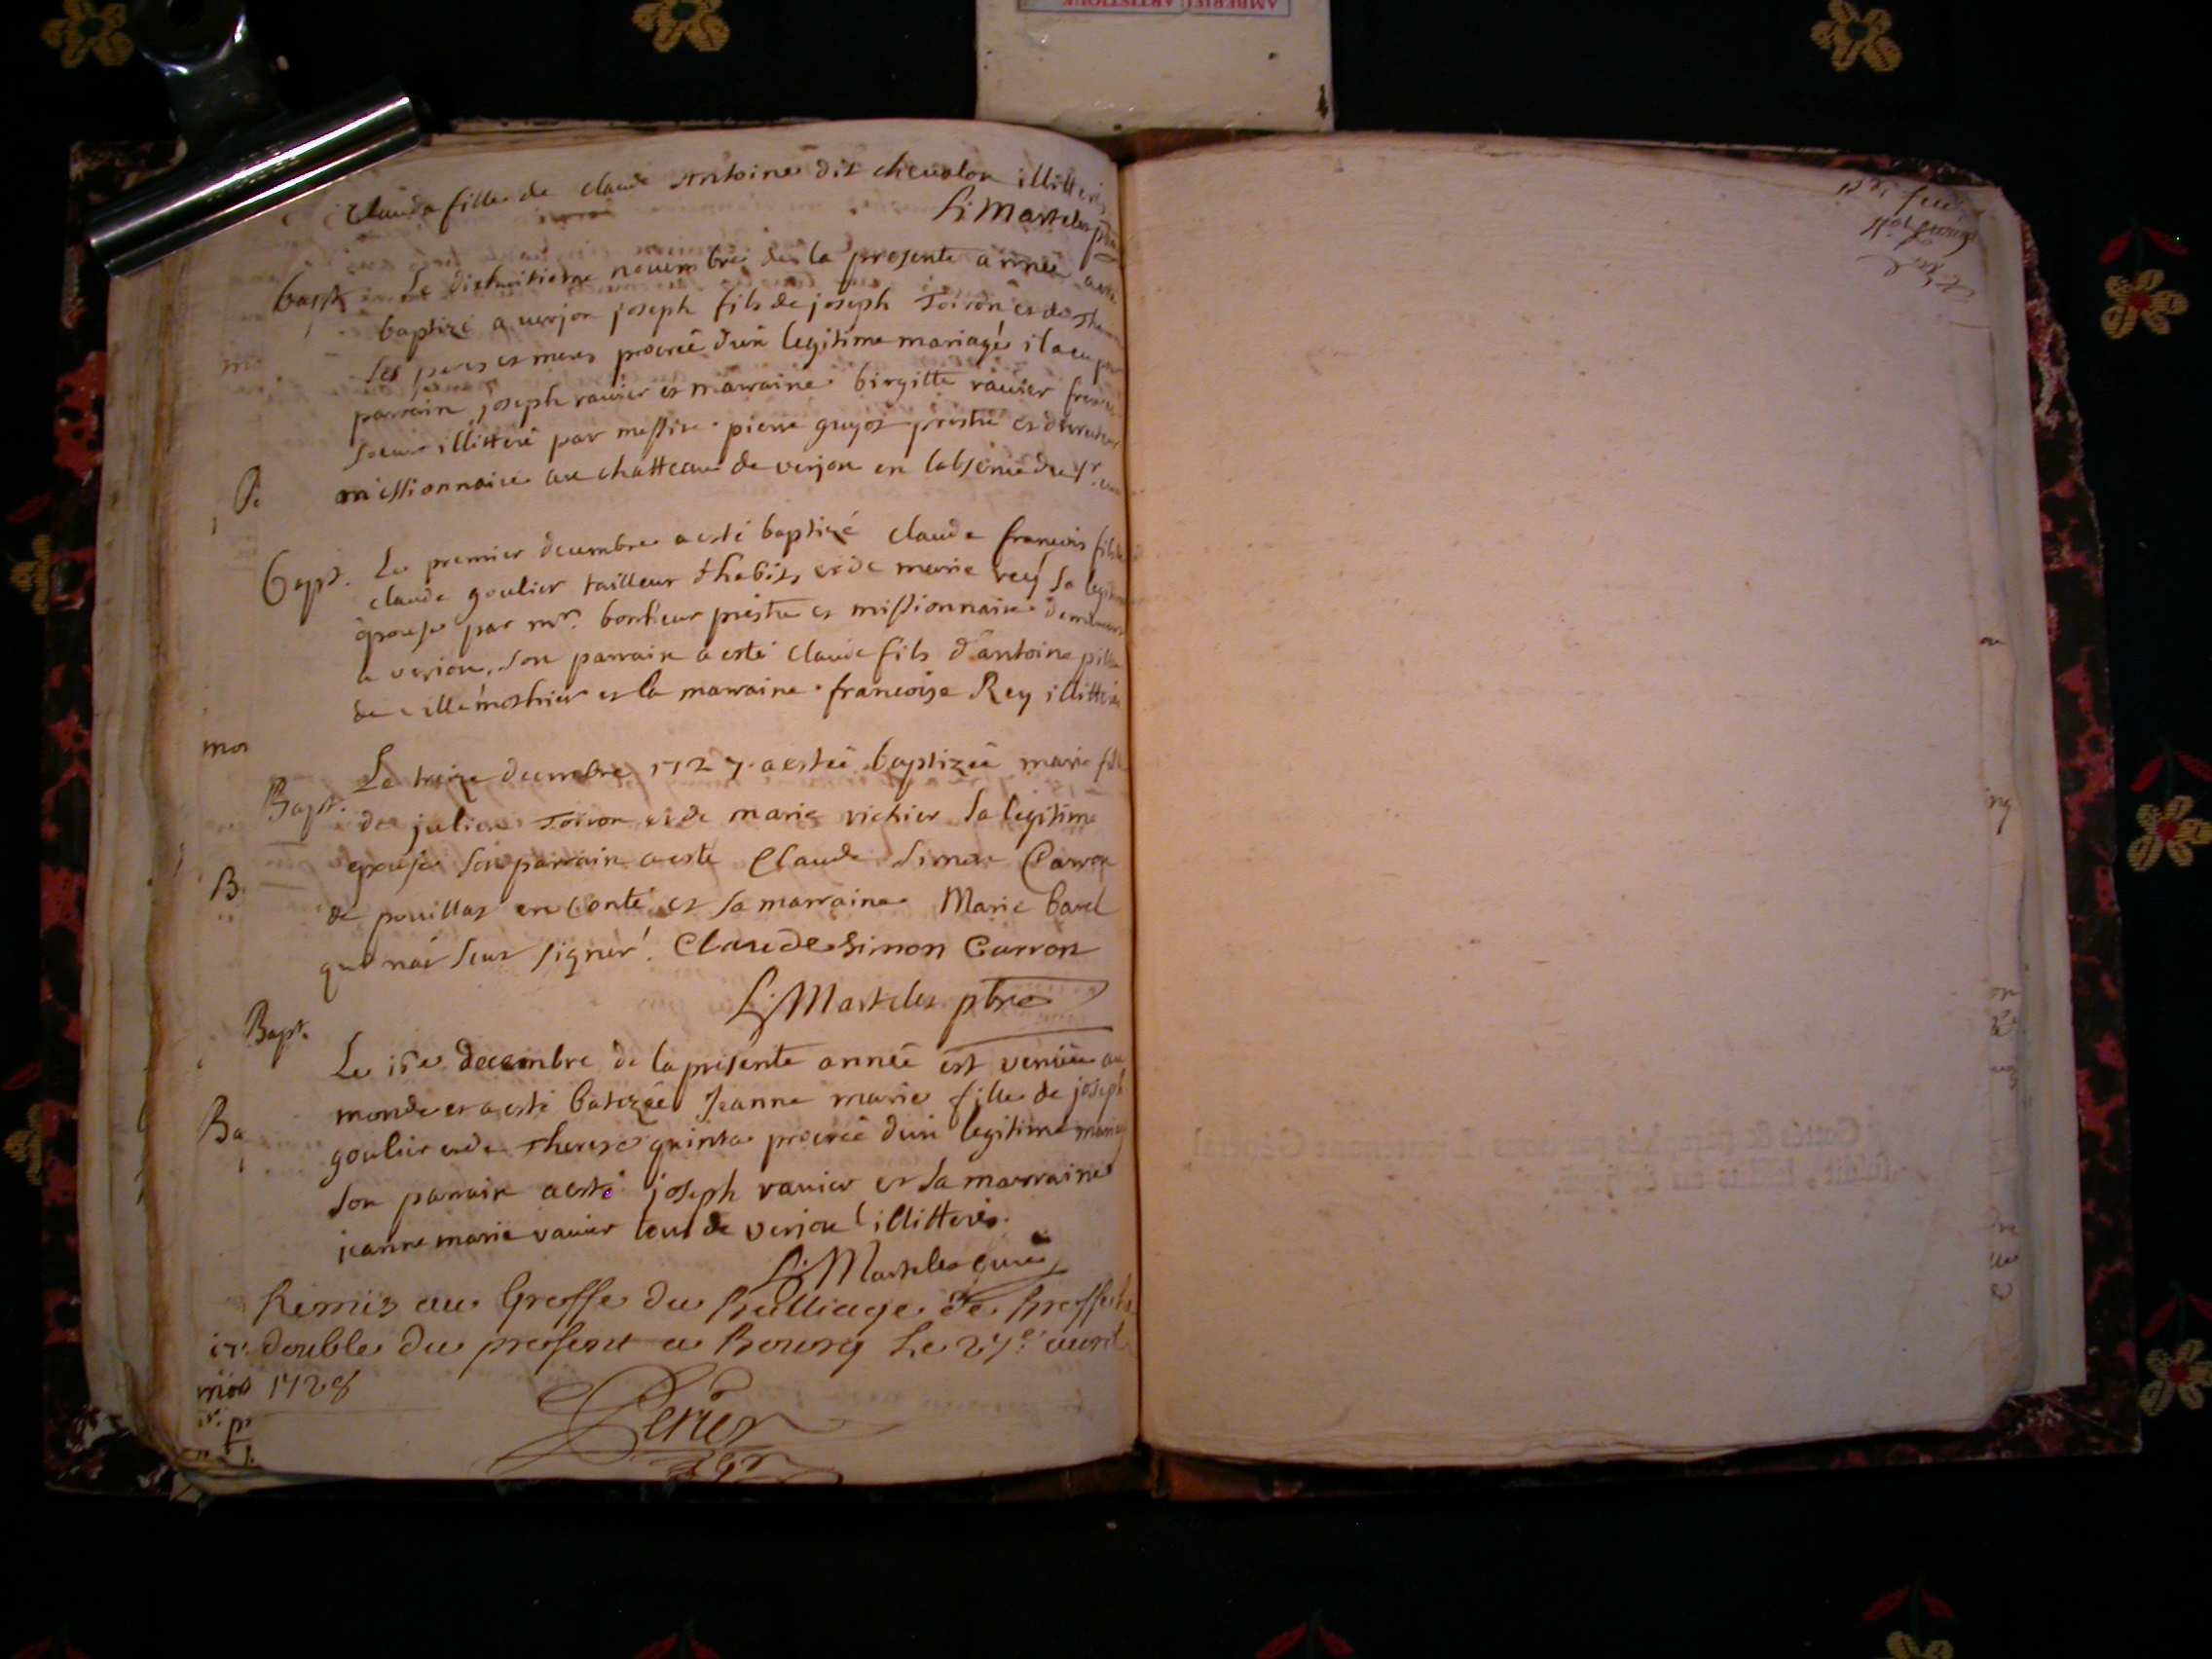 AMBERIEU ARTISTIQUE
Clauda fille de claude Antoine dit chevalon illitteris
L. Martelet ptre
bapt. Le dixhuitieme novembre de la presente année a esté
baptizé a verjon joseph fils de joseph Toiron et de
ses peres et meres procréé d'un legitime mariage il a eu pour
parrain joseph ravier et marraine birgitte ravier freres
soeur illitteré par messire pierre guyot prestre et directeur
missionnaire au chatteau de verjon en labsence du Sr. curé
Bapt. Le premier decembre a esté baptizé claude francois fils de
claude goulier tailleur d'habits et de marie rey sa legitime
epouse par mr. bonheur prestre et missionnaire demeurant
a verjon, son parrain a esté claude fils d'antoine
de villemothier et la marraine francoise Rey illitteris
Bapt. Le treize decembre 1727 a estée baptizée marie fille
de julien Toiron et de marie vichier sa legitime
epouse son parrain a esté Claude Simon Carron
de pouillat en Conté et sa marraine Marie barel
qui n'a sçut signer. Claude Simon Carron
L. Martelet ptre
Bapt.
Le 16e decembre de la presente année est venüe au
monde et a esté batizée Jeanne marie fille de joseph
goulier et de Therese quinta procréé d'un legitime mariage
son parrain a esté joseph ravier et sa marraine
jeanne marie ravier tous de verjon illitteris.
L. Martelet curé
Remis au Greffe du Balliage de Bresse le
double du present a Bourg le 27e. avril
1728
Perier